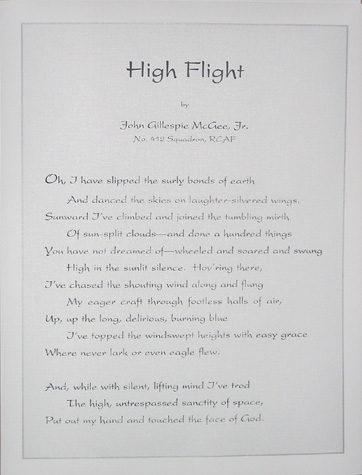 High Flight
by
John Gillespie McGee, Jr.
No. 412 Squadron, RCAF
Oh, I have slipped the surly bonds of earth
And danced the skies on laughter-silvered wings.
Sunward I've climbed and joined the tumbling mirth
Of sun-split clouds—and done a hundred things
You have not dreamed of—wheeled and soared and swung
High in the sunlit silence. Hov'ring there,
I've chased the shouting wind along and flung
My eager craft through footless halls of air,
Up, up the long, delirious, burning blue
I've topped the windswept heights with easy grace
Where never lark or even eagle flew.
And, while with silent, lifting mind I've trod
The high, untrespassed sanctity of space,
Put out my hand and touched the face of God.